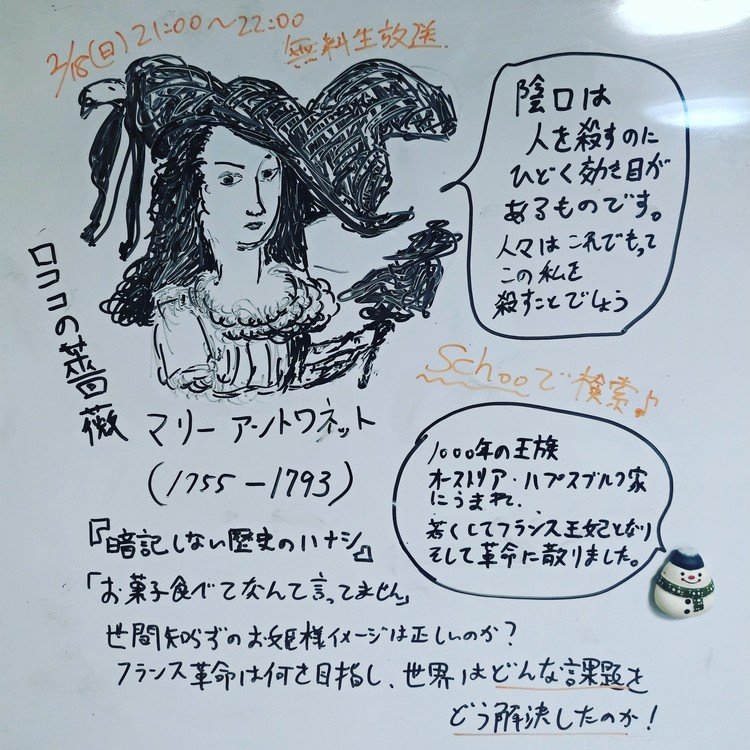 2/18(日)21:00〜22:00
無料生放送
陰口は
人を殺すのに
ひどく効き目が
あるものです。
人々はこれでもって
この私を
殺すことでしょう
ロココの薔薇
マリーアントワネット
(1755-1793)
Schooで検索♪
1000年の王族
オーストリア・ハプスブルク家
にうまれ、
若くしてフランス王妃となり
そして革命に散りました。
『暗記しない歴史のハナシ』
「お菓子食べてなんて言ってません」
世間知らずのお姫様イメージは正しいのか?
フランス革命は何を目指し、世界はどんな課題を
どう解決したのか!